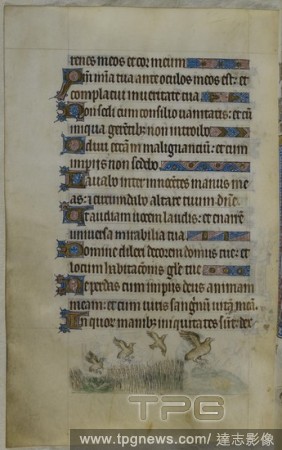 renes meos et cor meum
Qm mia tua ante oculos meos est: et
complacui in veritate tua
Non sedi cum consilio vanitatis: et cū
iniqua gerentib: non introibo
Odivi eccām malignanciū: et cum
impiis non sedebo
Lavabo inter innocentes manus me
as: et circumdabo altare tuum dñe
Ut audiam vocem laudis: et enarrē
universa mirabilia tua
Domine dilexi decorem domus tue: et
locum habitacōnis glīe tue
Ne perdas cum impiis deus animam
meam: et cum viris sanguinū vitā meā
In quorū manib: iniquitates sūt: dex
TPG
www.tpgnews.com/ 達志影像